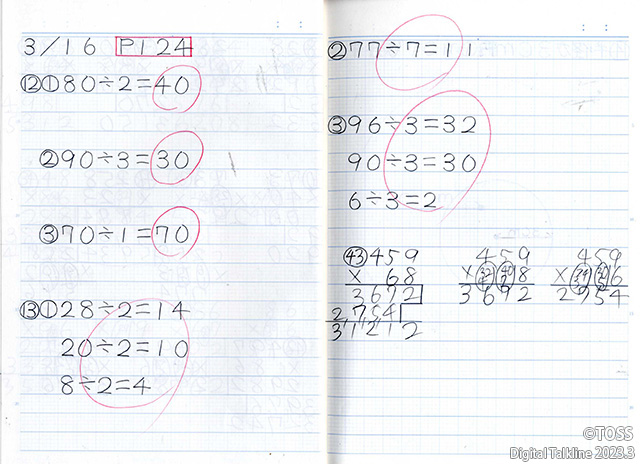 3/16 P124
⑫①80÷2=40
②90÷3=30
③70÷1=70
⑬①28÷2=14
20÷2=10
8÷2=4
②77÷7=11
③96÷3=32
90÷3=30
6÷3=2
㊸459
× 68
3672
2754
31212
459
× 8
3672
459
× 6
2754
©TOSS
Digital Talkline 2023.3